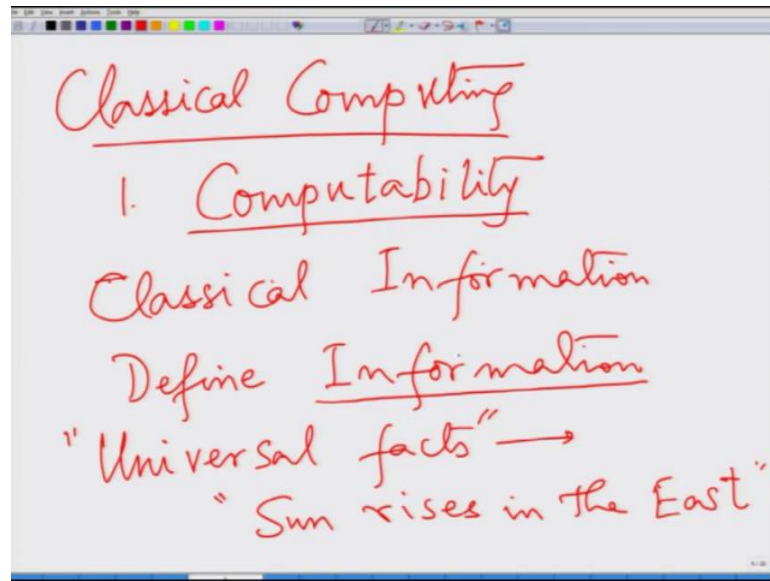 Classical Computing
1. Computability
Classical Information
Define Information
"Universal facts" →
"Sun rises in the East"